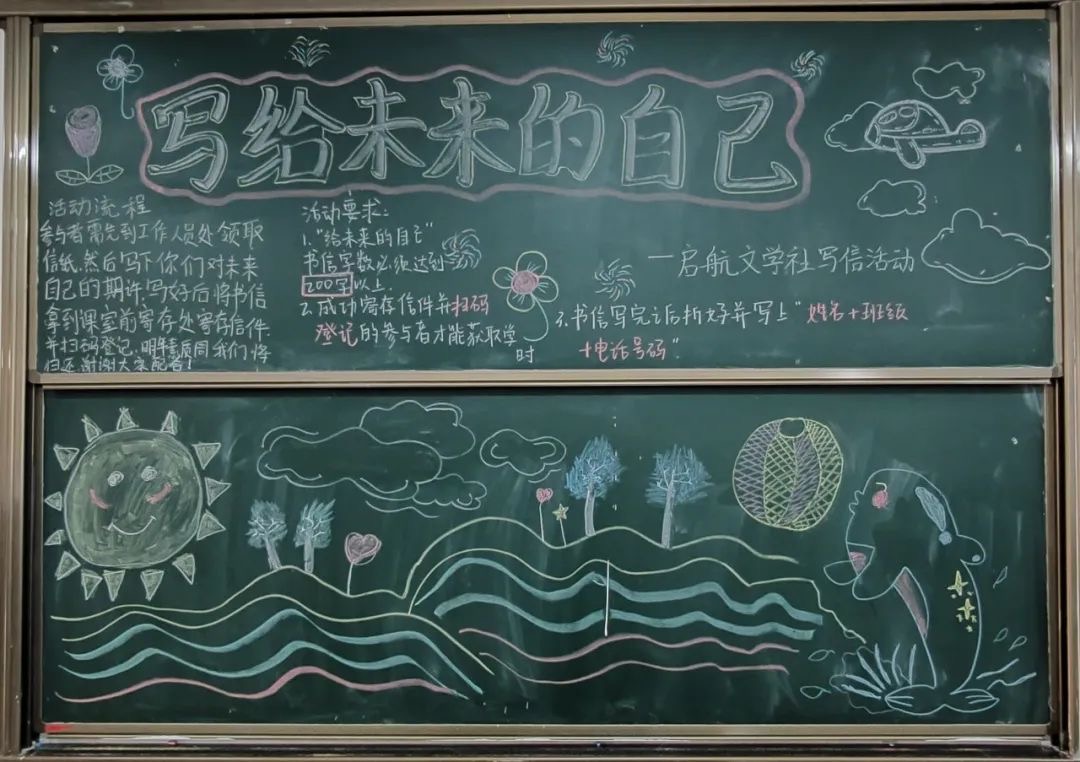 写给未来的自己
活动流程
参与者需先到工作人员处领取
信纸,然后写下你们对未来
自己的期许,写好后将书信
拿到课室前寄存处寄存信件
并扫码登记,明年我们将
归还谢谢大家配合!
活动要求:
1."给未来的自己"
书信字数必须达到
200字以上.
2.成功寄存信件并扫码
登记的参与者才能获取学
时
—启航文学社写信活动
3.书信写完之后折好并写上"姓名+班级
+电话号码"